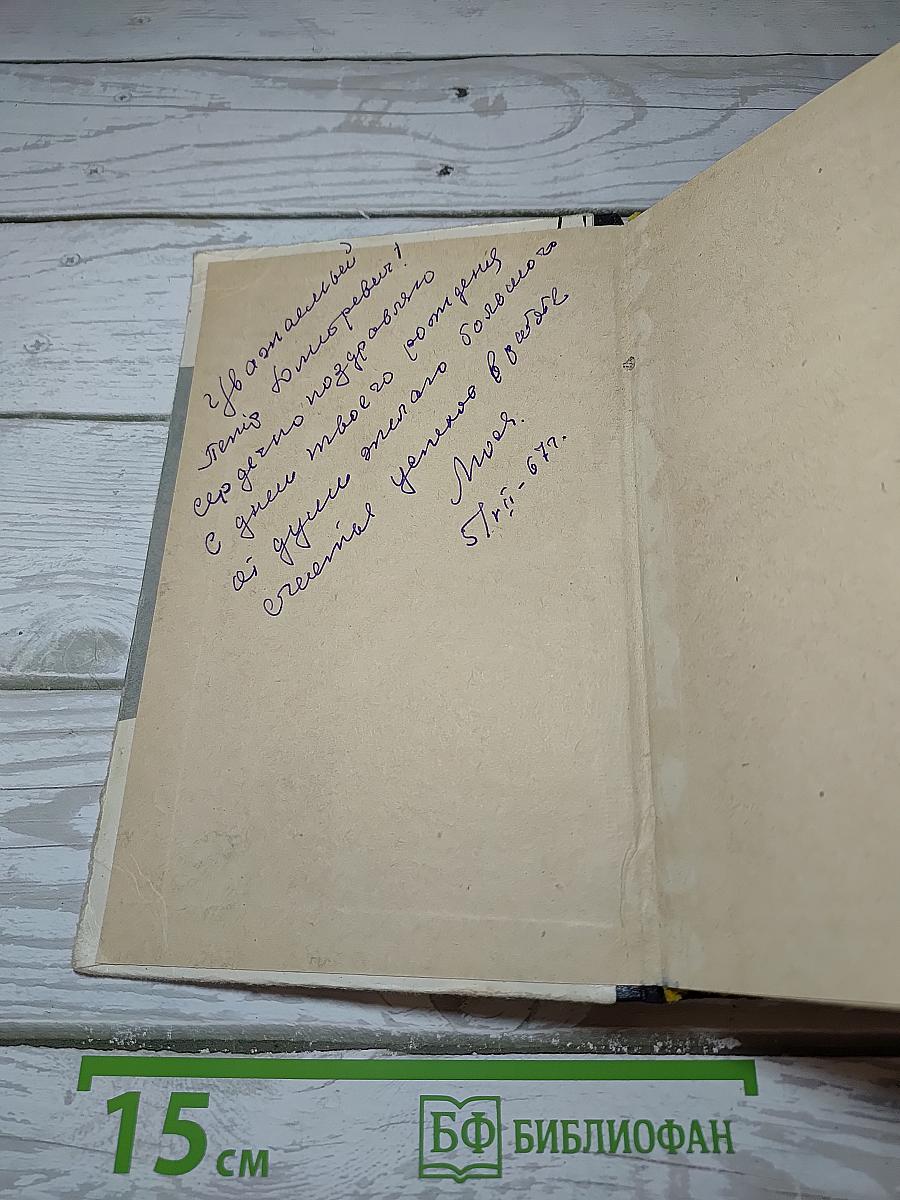 Уважаемый
Петр Дмитревич!
сердечно поздравляю
с днем твоего рождения
от души желаю большого
счастья успехов в работе
Люся.
5/VII-67г.
15 см
БФ БИБЛИОФАН